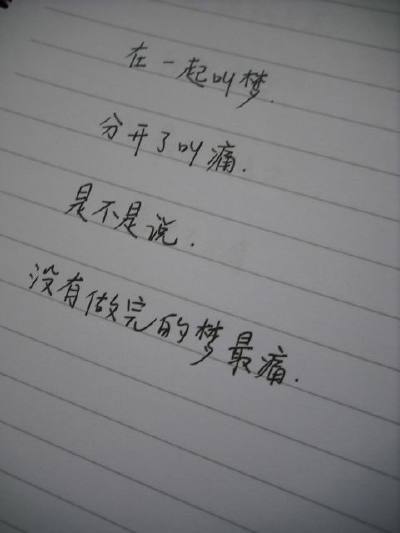 在一起叫梦.
分开了叫痛.
是不是说.
没有做完的梦最痛.